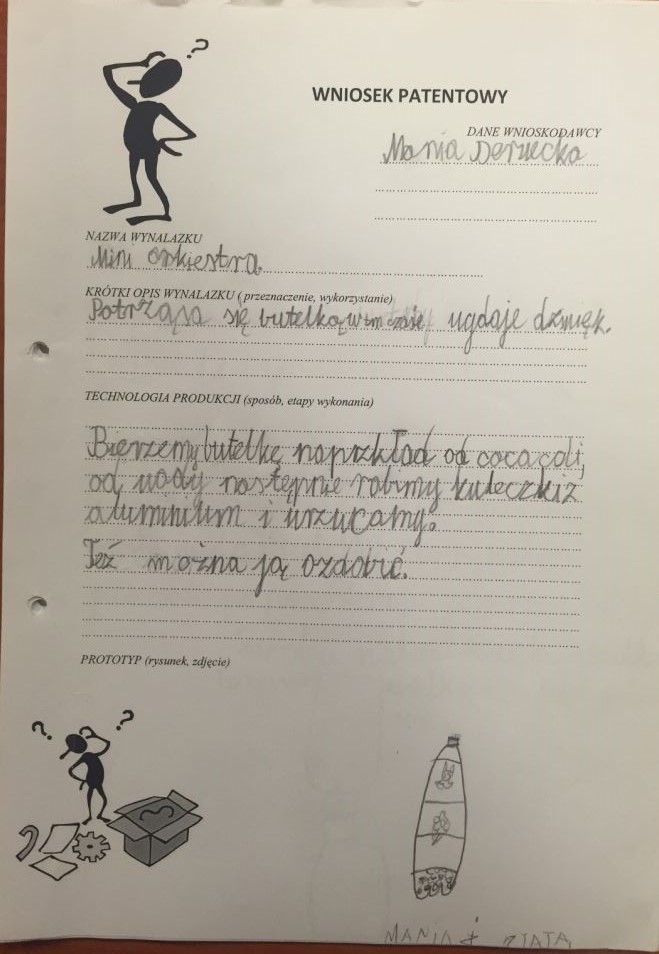 WNIOSEK PATENTOWY
DANE WNIOSKODAWCY
Mania
NAZWA WYNALAZKU
Mini orkiestra
KRÓTKI OPIS WYNALAZKU ( przeznaczenie, wykorzystanie)
Potrząsa się butelką w tym czasie wydaje dzwięk.
TECHNOLOGIA PRODUKCJI (sposób, etapy wykonania)
Bierzemy butelkę naprzkład od coca coli,
od wody następnie robimy kuleczki z
aluminium i wrzucamy.
Też można ją ozdobić.
PROTOTYP (rysunek, zdjęcie)
MANIA